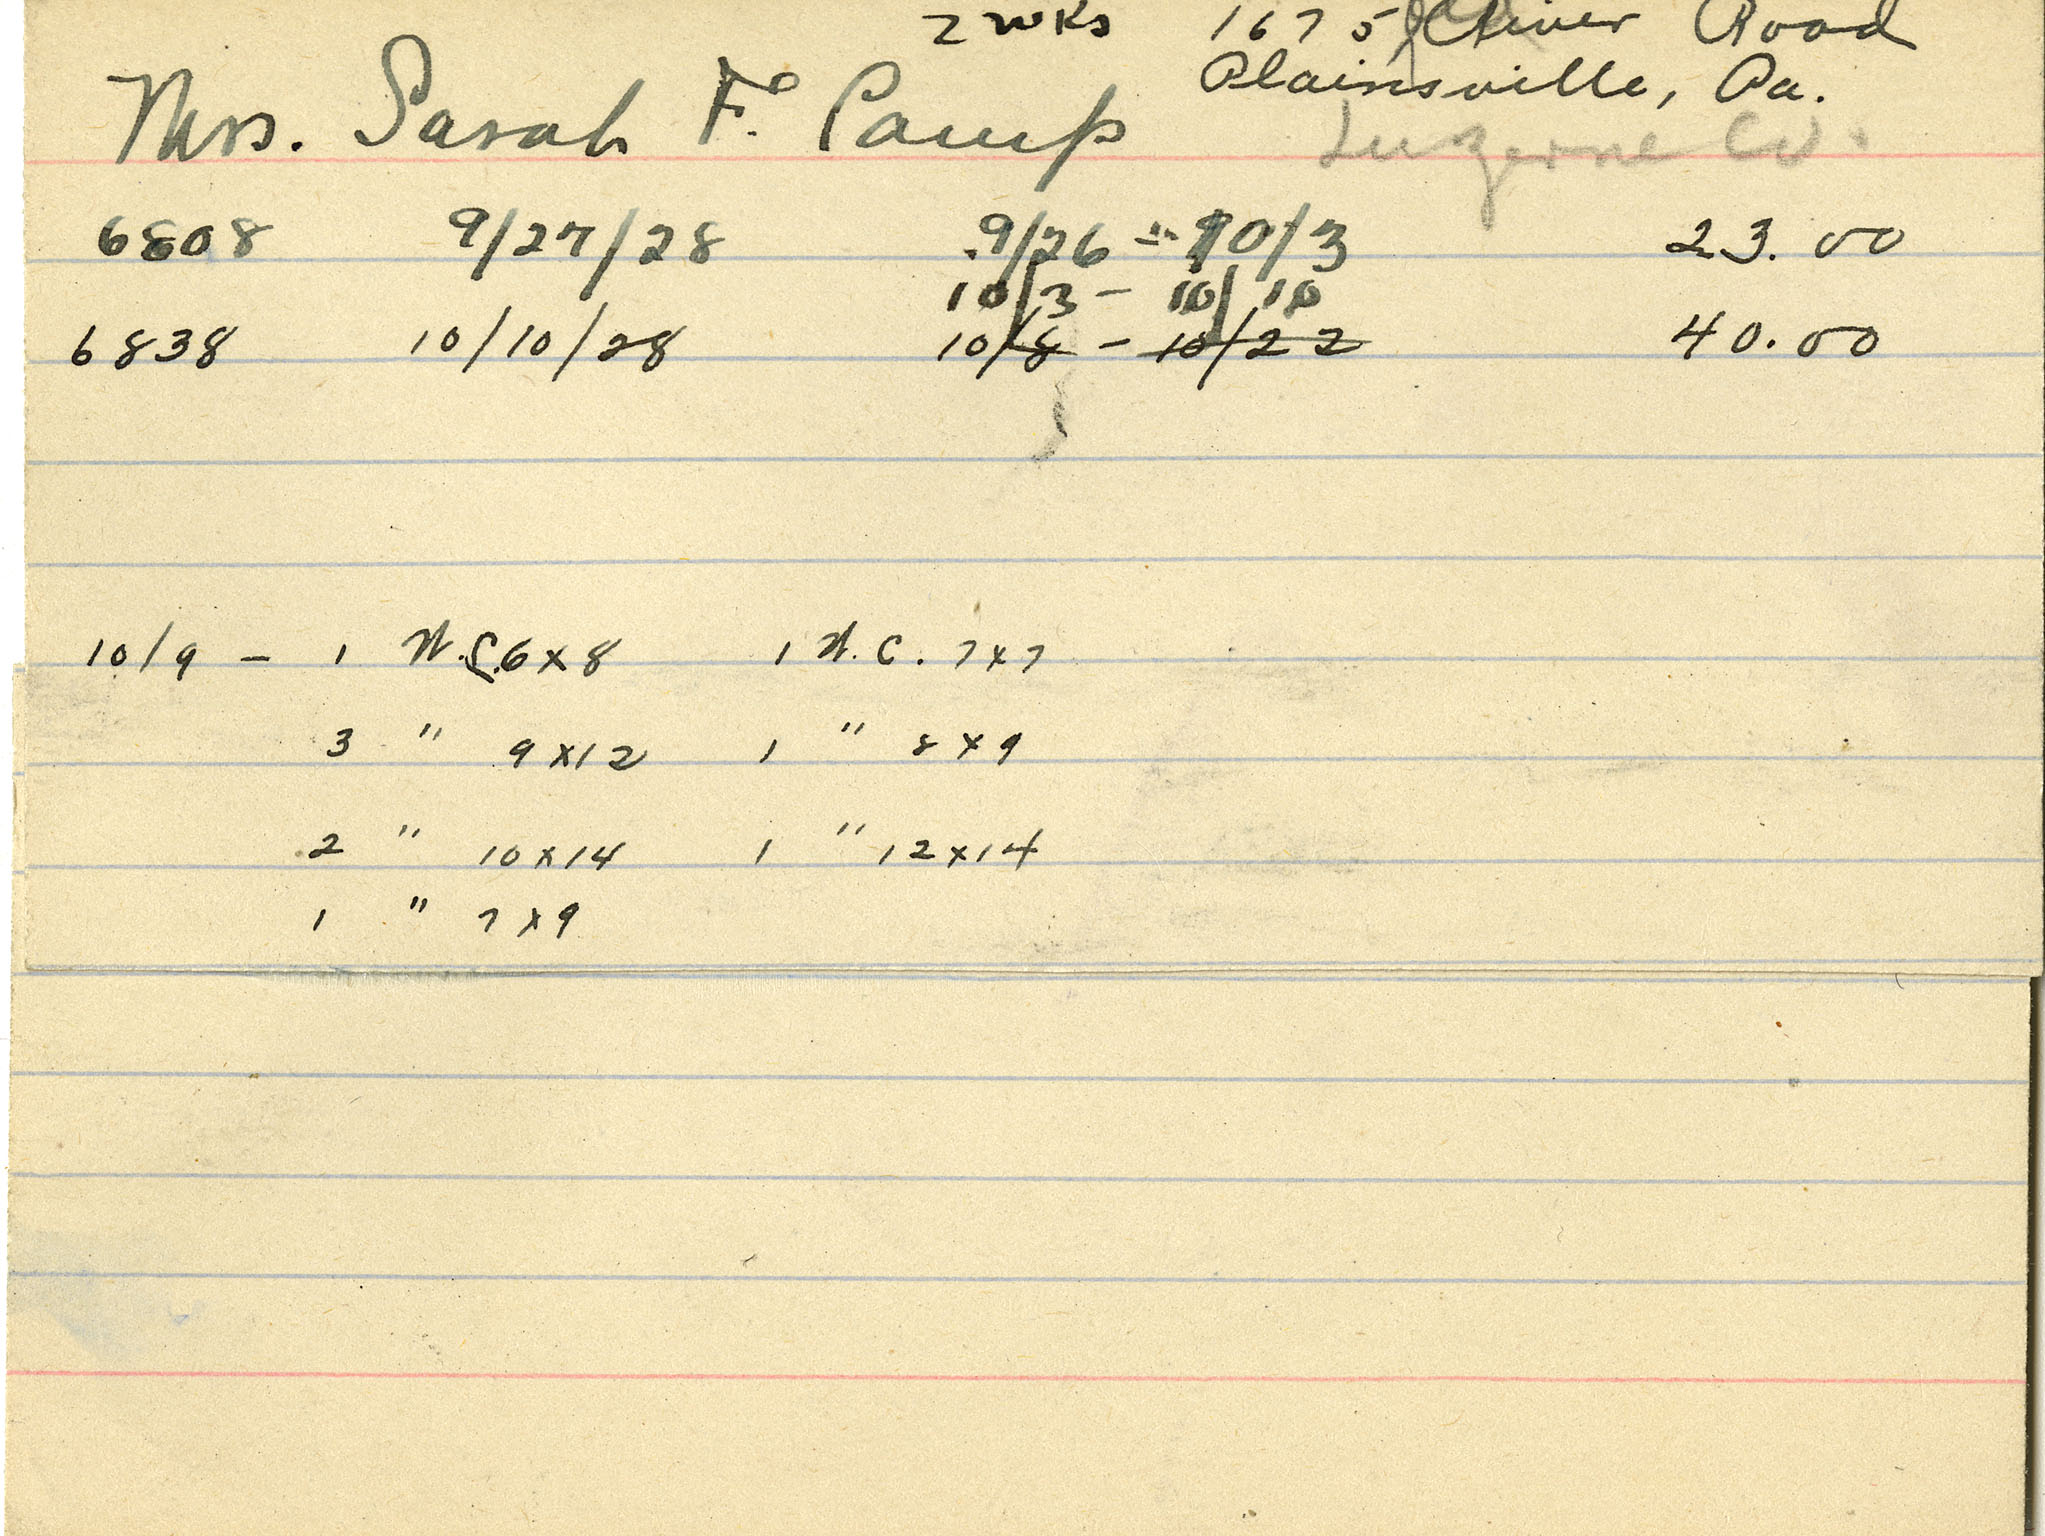 2 wks 1675 River Road
Mrs. Sarah F. Camp Plainsville, Pa.
Luzerne Co.
6808 9/27/28 9/26 - 10/3 23.00
10/3 - 10/10
6838 10/10/28 10/8 - 10/22 40.00
10/9 - 1 W.C. 6x8 1 W.C. 7x7
3 " 9x12 1 " 8x9
2 " 10x14 1 " 12x14
1 " 7x9